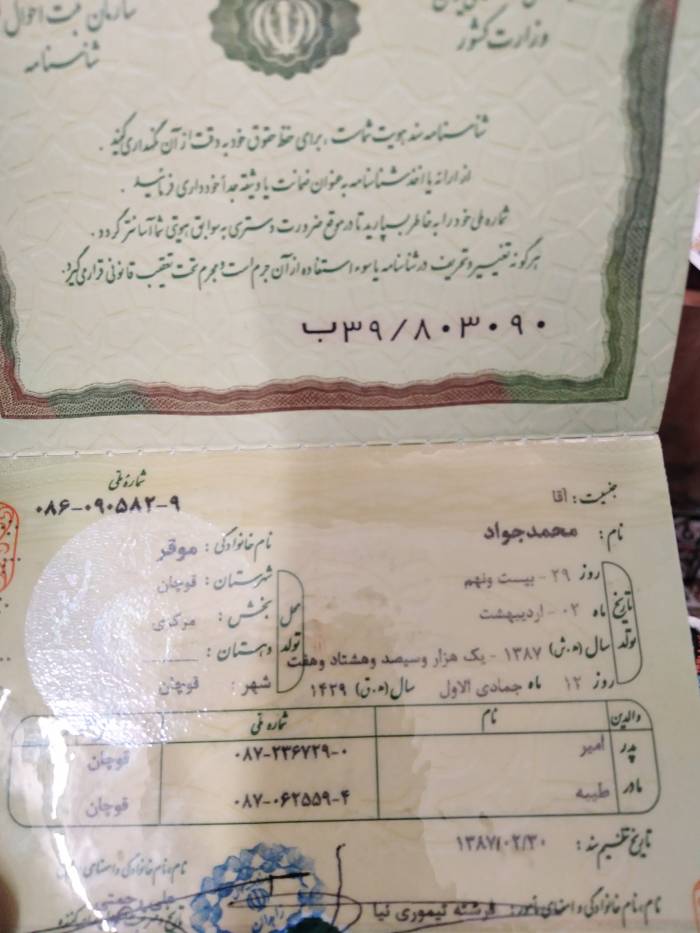 سازمان ثبت احوال
وزارت کشور
شناسنامه
شناسنامه سند هویت شماست ، برای حفظ حقوق خود به دقت از آن نگهداری کنید .
از ارائه یا اخذ شناسنامه به عنوان ضمانت یا وثیقه جداً خودداری فرمائید .
شماره ملی خود را به خاطر بسپارید تا در موقع ضرورت دسترسی به سوابق هویتی شما آسانتر گردد .
هرگونه تغییر و تحریف در شناسنامه یا سوء استفاده از آن جرم است و مجرم تحت تعقیب قانونی قرار می‌گیرد.
ب۳۹/۸۰۳۰۹۰
شماره ملی
۰۸۶-۰۹۰۵۸۲-۹
جنسیت : آقا
نام : محمدجواد
نام خانوادگی : موقر
تاریخ تولد
روز ۲۹ - بیست ونهم
ماه ۰۲ - اردیبهشت
سال (ه.ش) ۱۳۸۷ - یک هزار وسیصد وهشتاد وهفت
روز ۱۲ ماه جمادی الاول سال (ه.ق) ۱۴۲۹
محل تولد
شهرستان : قوچان
بخش : مرکزی
دهستان :
شهر : قوچان
والدین نام شماره ملی
پدر امیر ۰۸۷-۲۳۶۷۲۹-۰ قوچان
مادر طیبه ۰۸۷-۰۶۲۵۵۹-۴ قوچان
تاریخ تنظیم سند : ۱۳۸۷/۰۲/۳۰
نام، نام خانوادگی و امضای مأمور : فرشته تیموری نیا
نام، نام خانوادگی و امضای